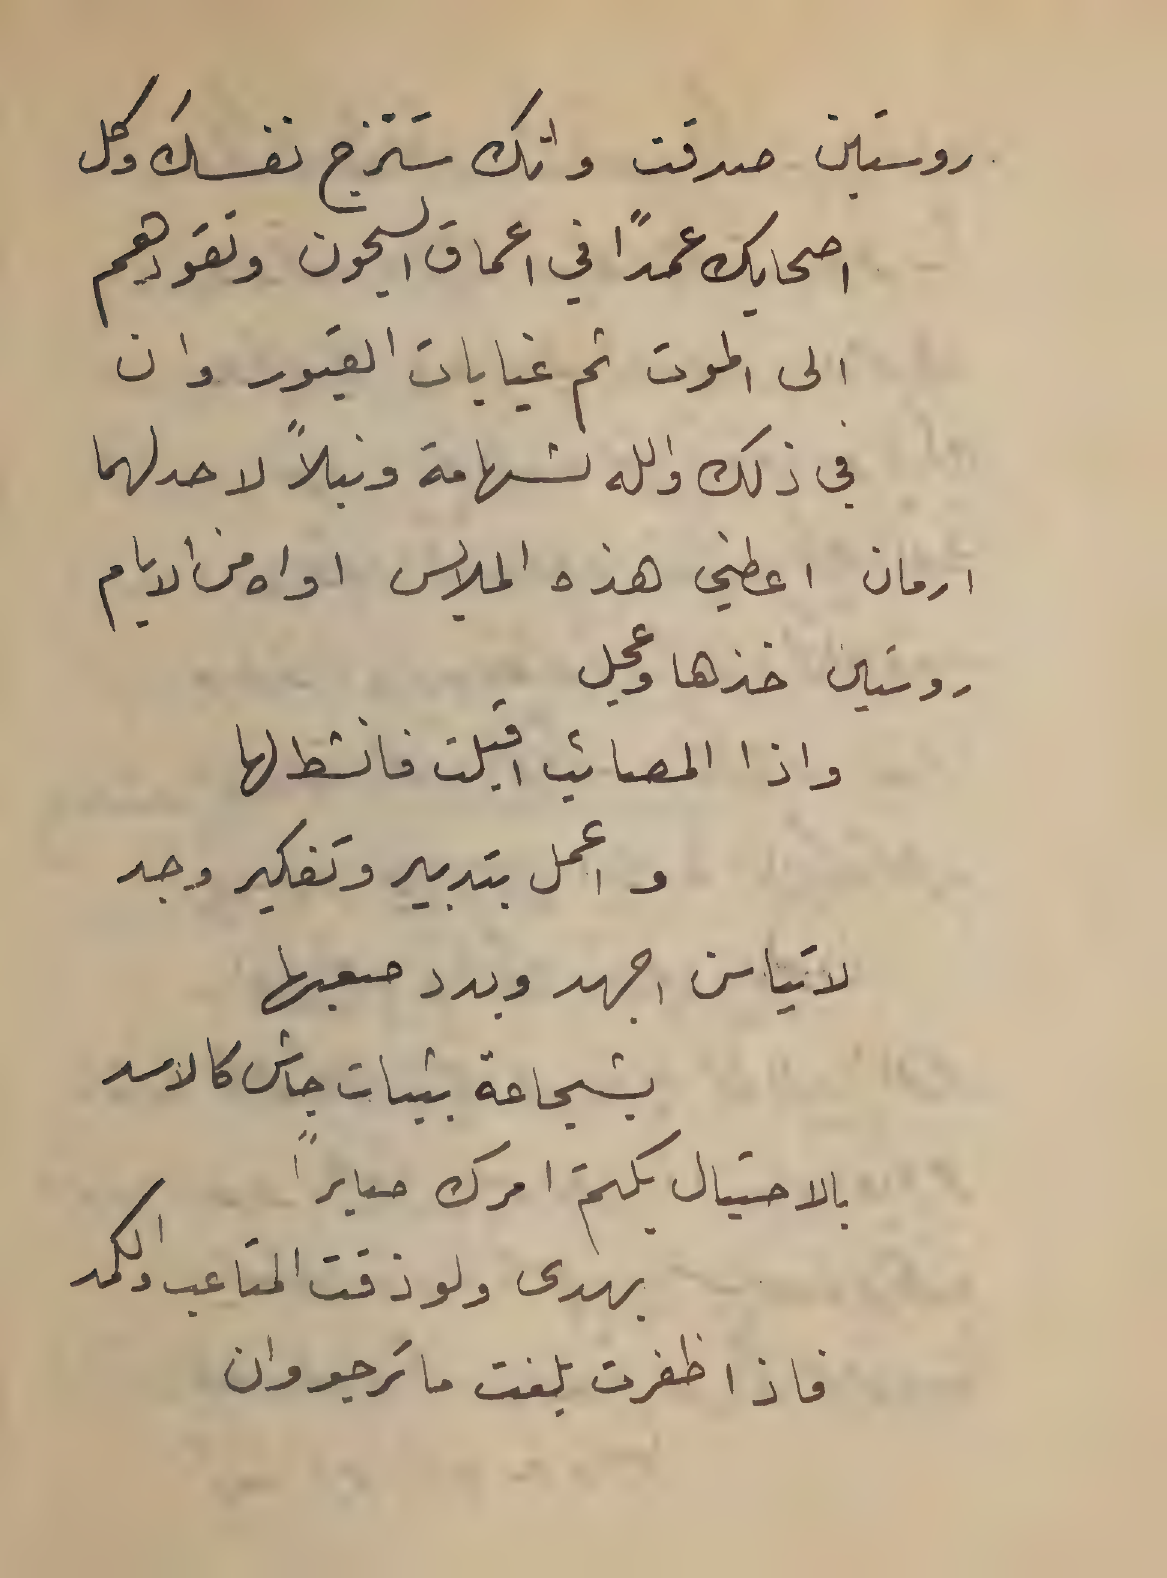 روستين صدقت وانك ستزج نفسك وكل
اصحابك عمدًا في اعماق السجون وتقودهم
الى الموت ثم غيابات القبور وان
في ذلك والله لشهامة ونبلاً لا حد لهما
ارمان اعطني هذه الملابس اواه من الايام
روستين خذها وعجل
واذا المصائب اقبلت فانشط لها
واعمل بتدبير وتفكير وجد
لا تيأسن اجهد وبدد صعبها
بشجاعة بثبات جاش كالاسد
بالاحتيال بكتم امرك صابرًا
بهدى ولو ذقت المتاعب والكمد
فاذا ظفرت بلغت ما ترجو وان